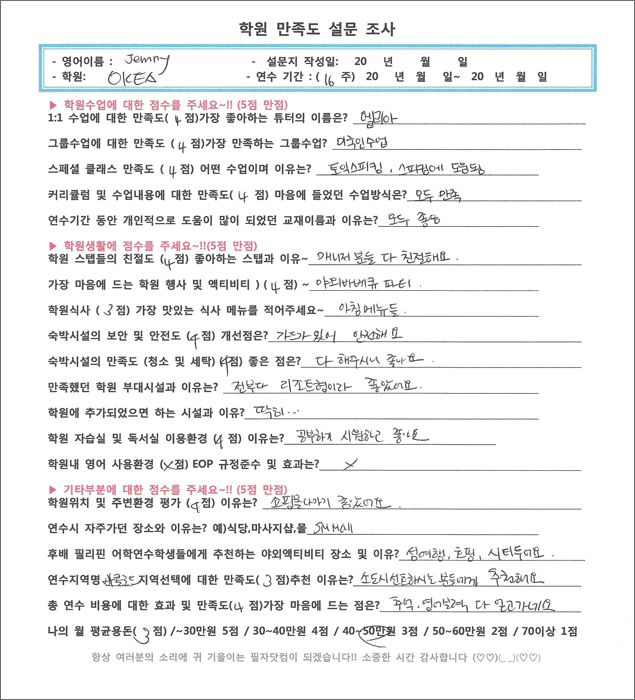 학원 만족도 설문 조사
- 영어이름 : Jemny - 설문지 작성일: 20 년 월 일
- 학원: OKEA - 연수 기간 : ( 16 주) 20 년 월 일~ 20 년 월 일
▶ 학원수업에 대한 점수를 주세요~!! (5점 만점)
1:1 수업에 대한 만족도( 4 점)가장 좋아하는 튜터의 이름은?
그룹수업에 대한 만족도( 4 점)가장 만족하는 그룹수업? 미국인수업
스페셜 클래스 만족도 ( 4 점) 어떤 수업이며 이유는? 토익스피킹, 스피킹에 도움됨
커리큘럼 및 수업내용에 대한 만족도( 4 점) 마음에 들었던 수업방식은? 모두 만족
연수기간 동안 개인적으로 도움이 많이 되었던 교재이름과 이유는? 모두 좋음
▶ 학원생활에 점수를 주세요~!!(5점 만점)
학원 스텝들의 친절도 ( 4 점) 좋아하는 스탭과 이유~ 매니저분들 다 친절해요.
가장 마음에 드는 학원 행사 및 액티비티 ) ( 4 점) ~ 야외바베큐 파티.
학원식사 ( 3 점) 가장 맛있는 식사 메뉴를 적어주세요~ 아침메뉴들.
숙박시설의 보안 및 안전도 ( 4 점) 개선점은? 가드가 있어 안전해요
숙박시설의 만족도 (청소 및 세탁) ( 4 점) 좋은 점은? 다 해주시니 좋아요.
만족했던 학원 부대시설과 이유는? 전부다 리조트형이라 좋았어요.
학원에 추가되었으면 하는 시설과 이유? 딱히...
학원 자습실 및 독서실 이용환경 ( 4 점) 이유는? 공부하기 시원하고 좋아요
학원내 영어 사용환경 ( x 점) EOP 규정준수 및 효과는? x
▶ 기타부분에 대한 점수를 주세요~!! (5점 만점)
학원위치 및 주변환경 평가 ( 4 점) 이유는? 쇼핑몰나가기 좋았어요.
연수시 자주가던 장소와 이유는? 예)식당,마사지샵,몰 SM Mall
후배 필리핀 어학연수학생들에게 추천하는 야외액티비티 장소 및 이유? 섬여행, 호핑, 시티투어요.
연수지역명 바콜로드 지역선택에 대한 만족도( 3 점)추천 이유는? 소도시선호하시는 분들에게 추천해요
총 연수 비용에 대한 효과 및 만족도( 4 점)가장 마음에 드는 점은? 추억·영어능력 다 얻고가네요
나의 월 평균용돈( 3 점) /~30만원 5점 / 30~40만원 4점 / 40~50만원 3점 / 50~60만원 2점 / 70이상 1점
항상 여러분의 소리에 귀 기울이는 필자닷컴이 되겠습니다!! 소중한 시간 감사합니다 (♡♡)(_ _)(♡♡)